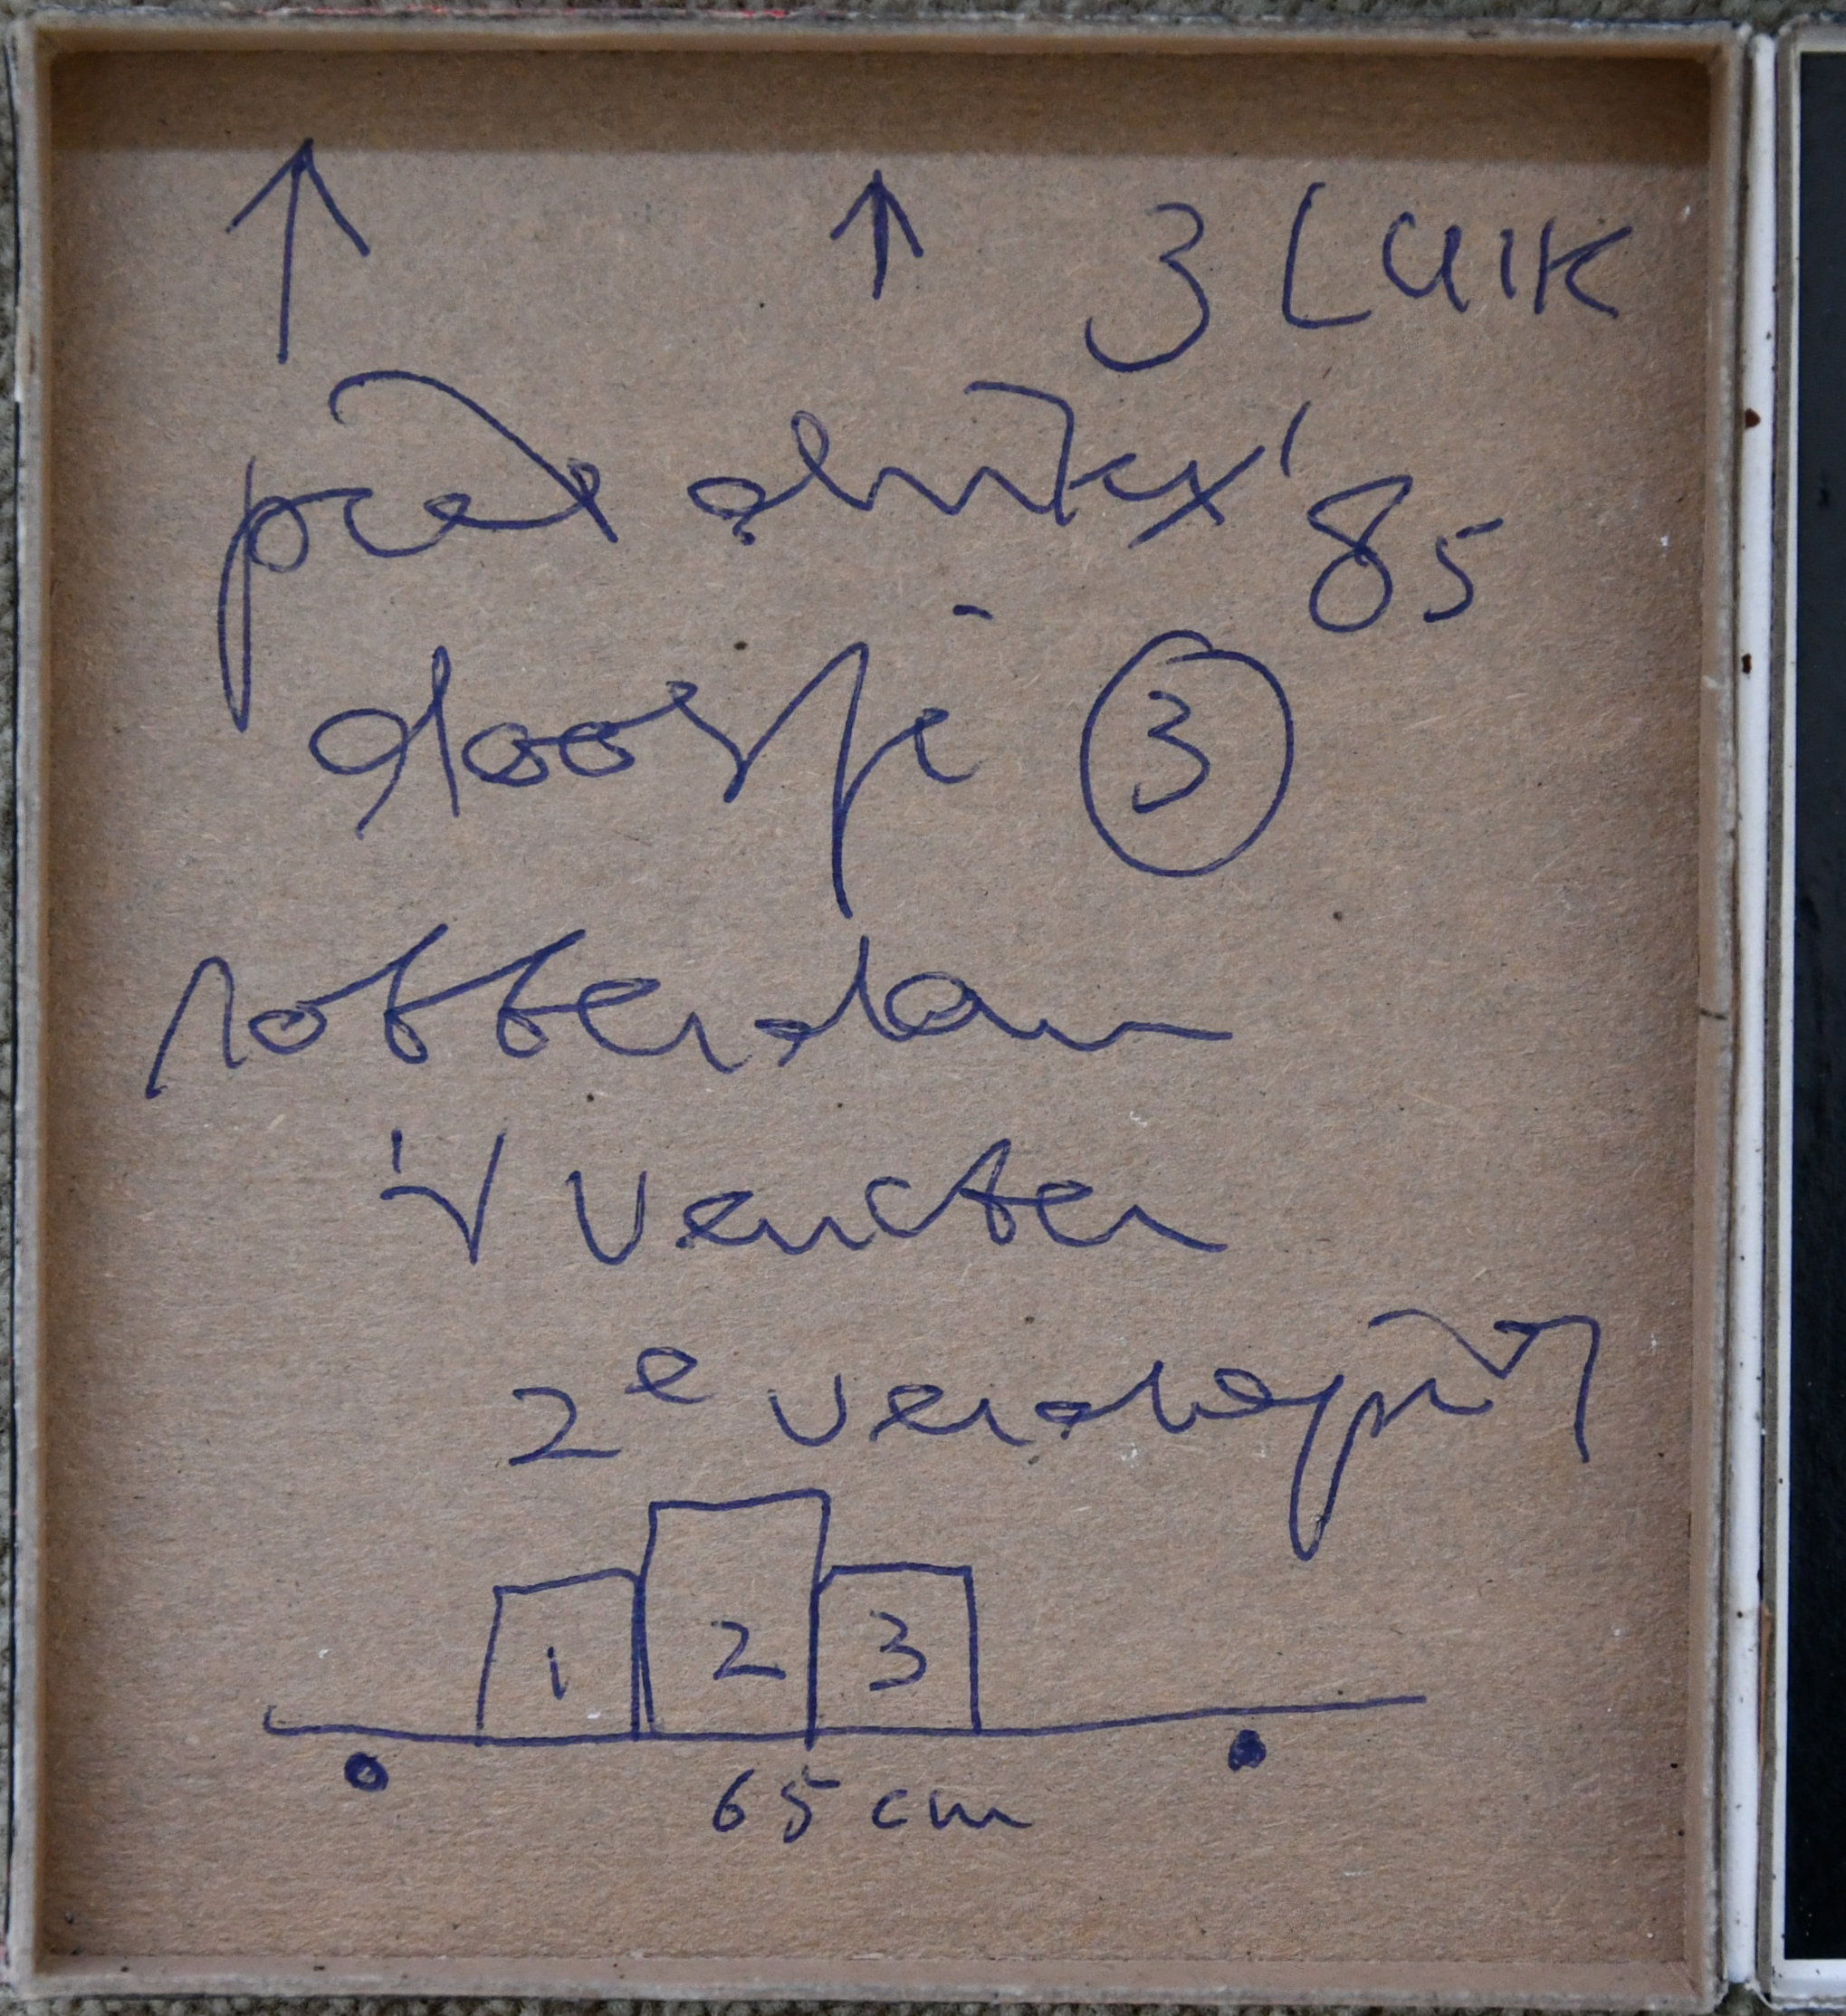 3 LUIK
piet dirkx '85
doosje 3
rotterdam
't venster
2e verdieping
1 2 3
65 cm